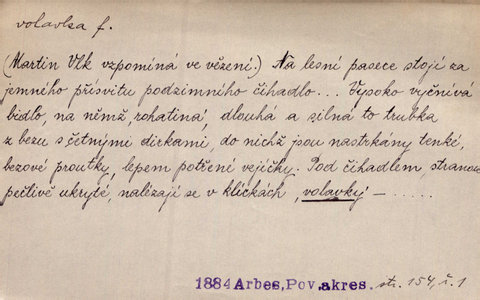 volavka f.
(Martin Vlk vzpomíná ve vězení.) Na lesní pasece stojí za
jemného přísvitu podzimního čihadlo... Vysoko vyčnívá
bidlo, na němž,rohatina', dlouhá a silná to trubka
z bezu s četnými dírkami, do nichž jsou nastrkány tenké,
bezové proutky, lepem potření vejičky. Pod čihadlem, stranou
pečlivě ukryté, nalézají se v klíckách, volavky' — .....
1884 Arbes, Pov.akres. str. 154, ř. 1